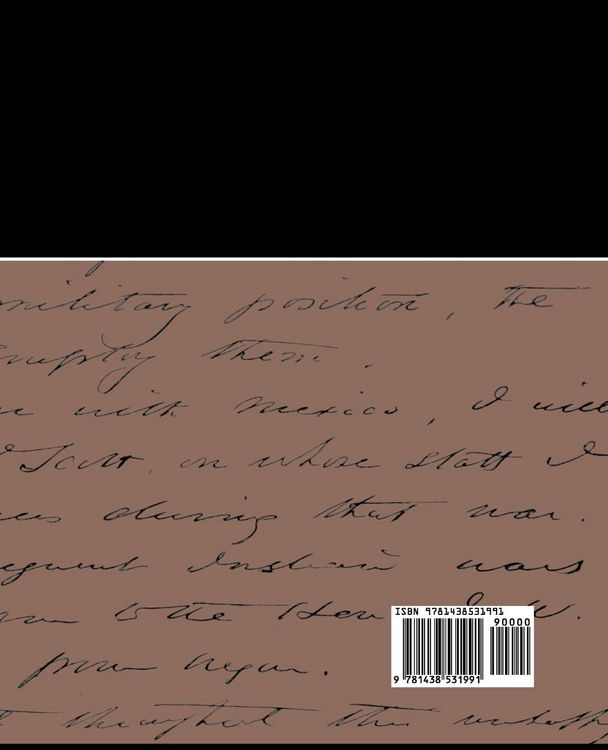 military position, the
employ them.
with Mexico, I will
Scott, on whose staff I
during that war.
Indian wars
to the Hon. W.
power began.
throughout this
ISBN 9781438531991
90000
9 781438 531991